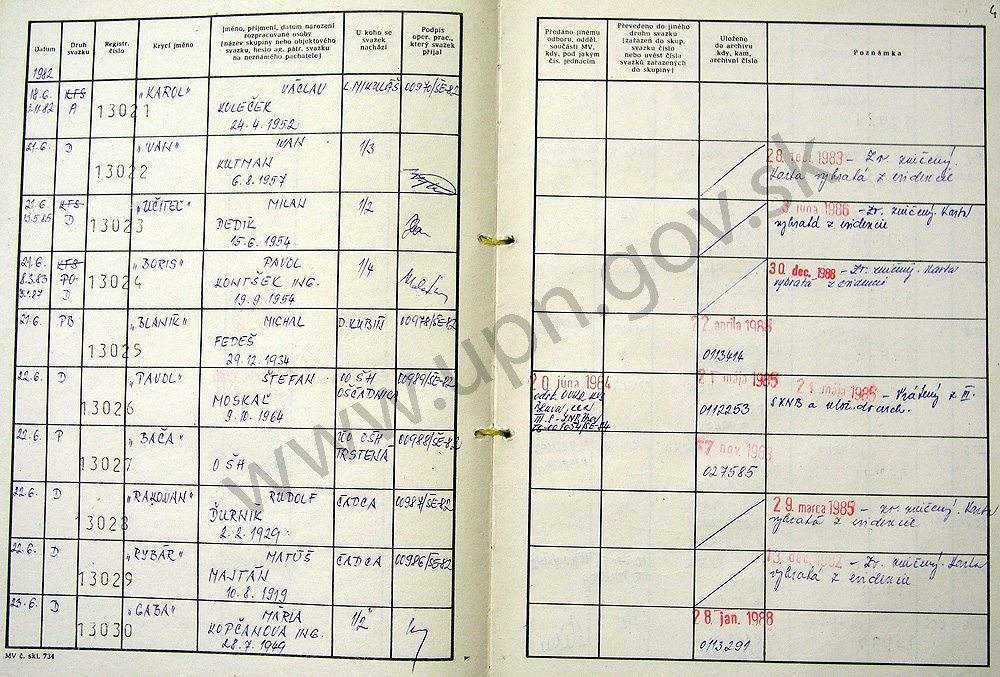 4
Datum
Druh svazku
Registr. číslo
Krycí jméno
Jméno, příjmení, datum narození
rozpracované osoby
(název skupiny nebo objektového
svazku, heslo ag. pátr. svazku
na neznámého pachatele)
U koho se
svazek
nachází
Podpis
oper. prac.,
který svazek
přijal
Předáno jinému
odboru, odděl.
součásti MV,
kdy, pod jakým
čís. jednacím
Převedeno do jiného
druhu svazku
(zařazen do skup.
svazku číslo
nebo uvést čísla
svazků zařazených
do skupiny)
Uloženo
do archivu
kdy, kam,
archivní číslo
Poznámka
1982
18.6. KFS 13021 „KAROL" VÁCLAV L. MIKULÁŠ 00970/ŠE-82
3.11.82 A KOLEČEK
24.4.1952
21.6. D 13022 „VÁŇ" IVAN 1/3
KUTMAN
6.8.1957
1983 – Zv. zničený.
Karta vybratá z evidencie
21.6. KFS 13023 „UČITEĽ" MILAN 1/2
D DEDÍK
15.6.1954
júna 1986 – Zv. zničený. Karta
vybratá z evidencie
21.6. KFS 13024 „BORIS" PAVOL 1/4
8.3.83 PO KONTŠEK ING.
D 19.9.1954
30. dec. 1988 – Zv. zničený. Karta
vybratá z evidencie
21.6. PB 13025 „BLANÍK" MICHAL D. KUBÍN 00978/ŠE-82
FEDEŠ
29.12.1934
22. apríla 1988
0113414
22.6. D 13026 „PAVOL" ŠTEFAN OO ŠH 00989/ŠE-82
MOSKAĽ OŠČADNICA
9.10.1964
20. júna 1984
21 mája 1985
0112253
21 mája 1985 – Vrátený z III.
SKNB a ulož. do arch.
22.6. P 13027 „BAČA" OO OŠH 00988/ŠE-82
OŠH TRSTENÁ
nov.
027585
22.6. D 13028 „RAKOVAN" RUDOLF ČADCA 00987/ŠE-82
ĎURNÍK
2.2.1929
29. marca 1985 – Zv. zničený. Karta
vybratá z evidencie
22.6. D 13029 „RYBÁR" MATÚŠ ČADCA 00986/ŠE-82
MAJTÁN
10.8.1919
Zv. zničený. Karta
vybratá z evidencie
23.6. D 13030 „GABA" MÁRIA 1/2
KOPČANOVÁ ING.
28.7.1949
28. jan. 1988
0113291
MV č. skl. 734
www.upn.gov.sk